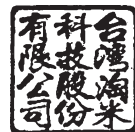 台灣淘米
科技股份
有限公司